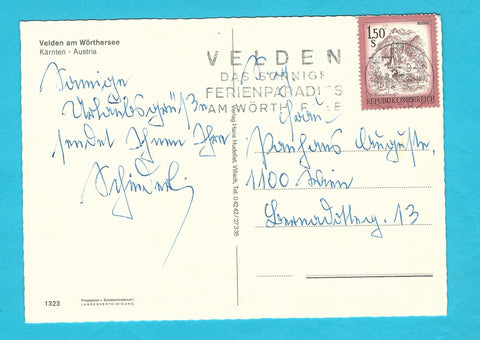 Velden am Wörthersee
Kärnten - Austria
Sonnige
Urlaubsgrüße
sendet Ihnen Ihr
1323
Freigegeben v. Bundesministerium f.
LANDESVERTEIDIGUNG
Verlag Hans Huditzer, Villach, Tel. 04242/27335
VELDEN
DAS SONNIGE
FERIENPARADIES
AM WÖRTHERSEE
1.50
S
REPUBLIK ÖSTERREICH
Frau
Auguste,
1100 Wien
13